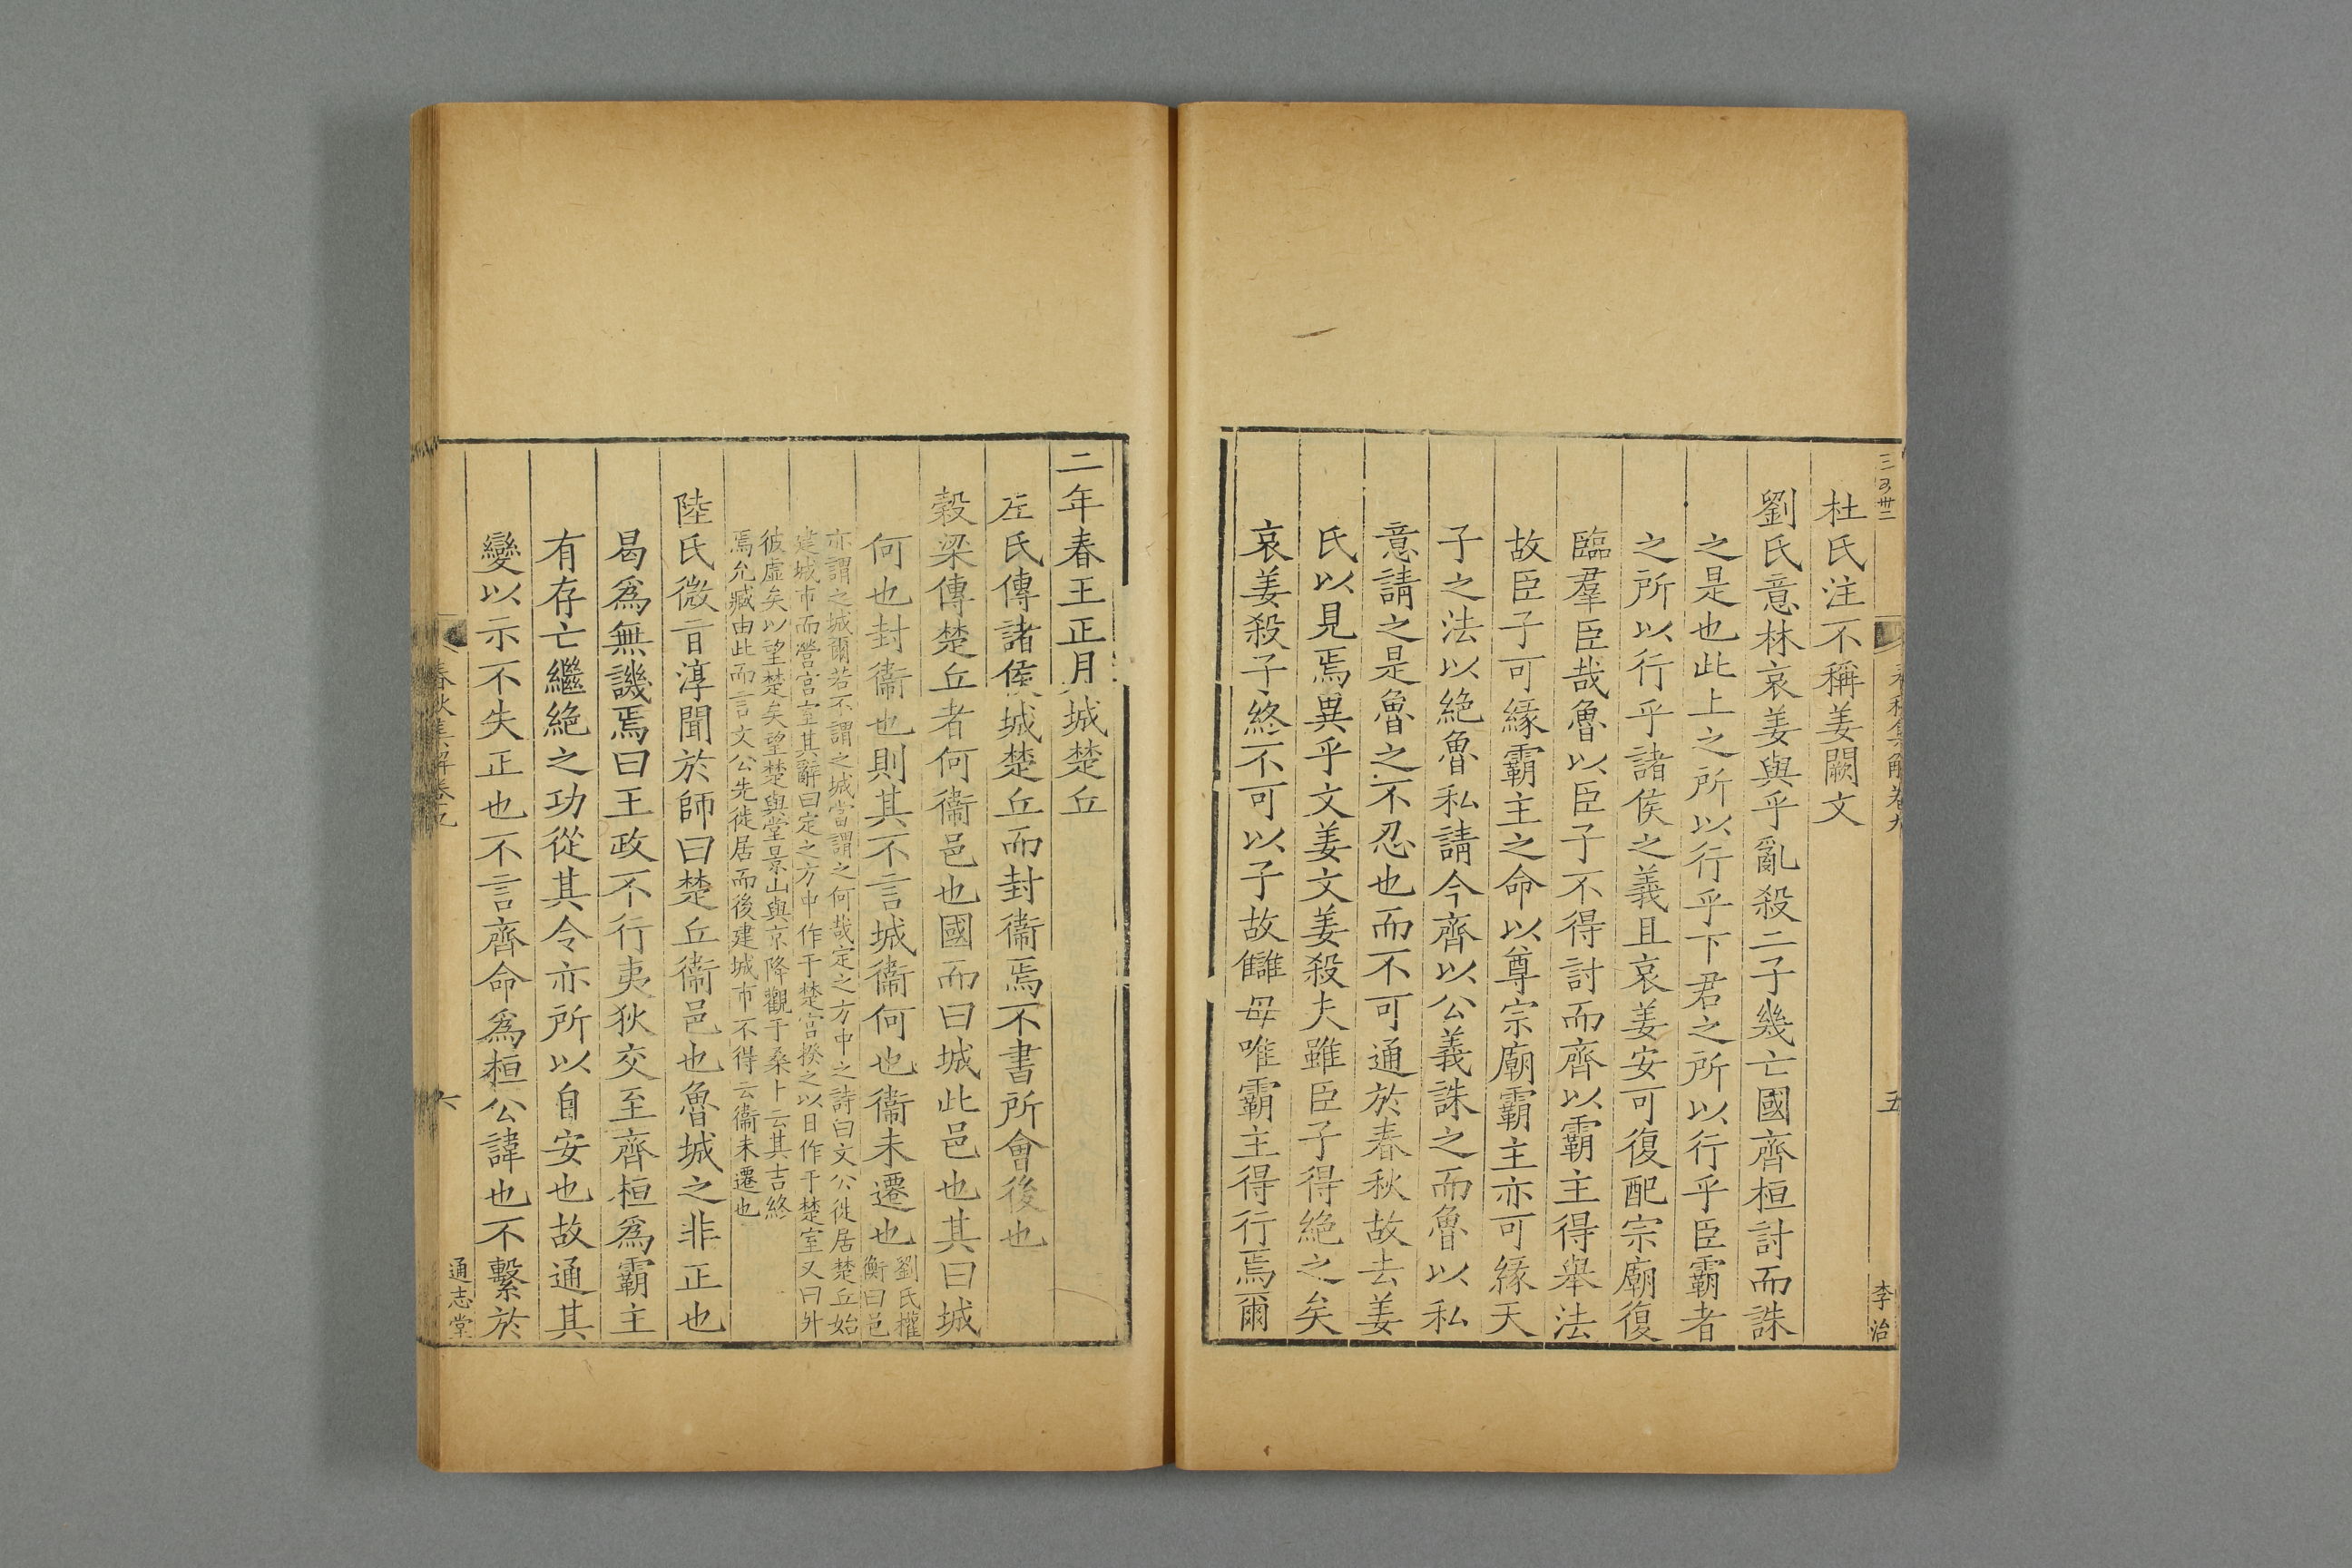 杜氏注不稱姜闕文
劉氏意林哀姜與乎亂殺二子幾亡國齊桓討而誅
之是也此上之所以行乎下君之所以行乎臣霸者
之所以行乎諸侯之義且哀姜安可復配宗廟復
臨羣臣哉魯以臣子不得討而齊以霸主得舉法
故臣子可緣霸主之命以尊宗廟霸主亦可緣天
子之法以絕魯私請今齊以公義誅之而魯以私
意請之是魯之不忍也而不可通於春秋故去姜
氏以見焉異乎文姜文姜殺夫雖臣子得絕之矣
哀姜殺子終不可以子故讎母唯霸主得行焉爾
五
李治
二年春王正月城楚丘
左氏傳諸侯城楚丘而封衞焉不書所會後也
穀梁傳楚丘者何衞邑也國而曰城此邑也其曰城
何也封衞也則其不言城衞何也衞未遷也劉氏權
衡曰邑
亦謂之城爾若不謂之城當謂之何哉定之方中之詩曰文公徙居楚丘始
建城市而營宮室其辭曰定之方中作于楚宮揆之以日作于楚室又曰升
彼虛矣以望楚矣望楚與堂景山與京降觀于桑卜云其吉終
焉允臧由此而言文公先徙居而後建城市不得云衞未遷也
陸氏微旨淳聞於師曰楚丘衞邑也魯城之非正也
曷爲無譏焉曰王政不行夷狄交至齊桓爲霸主
有存亡繼絶之功從其令亦所以自安也故通其
變以示不失正也不言齊命爲桓公諱也不繫於
六
通志堂